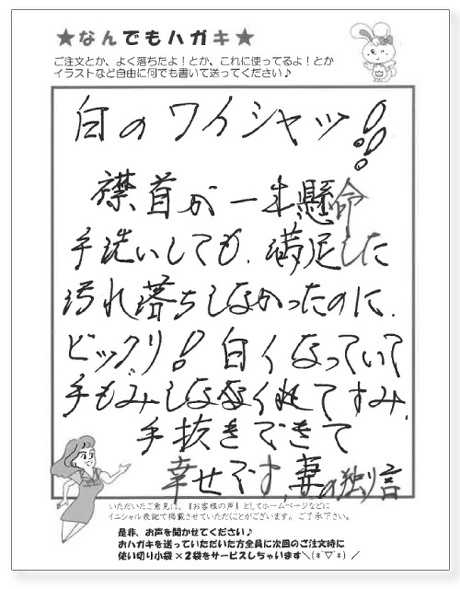 ★なんでもハガキ★
ご注文とか、よく落ちたよ!とか、これに使ってるよ!とか
イラストなど自由に何でも書いて送ってください♪
白のワイシャツ!!
襟首が一生懸命
手洗いしても、満足した
汚れ落ちしなかったのに、
ビックリ!白くなっていて
手もみしなくれてすみ、
手抜きできて
幸せです、妻の独り言
いただいたご意見は、『お客様の声』としてホームページなどに
イニシャル表記で掲載させていただくことがございます。ご了承下さい。
是非、お声を聞かせてください♪
おハガキを送っていただいた方全員に次回のご注文時に
使い切り小袋×2袋をサービスしちゃいます＼(*´▽`*)／